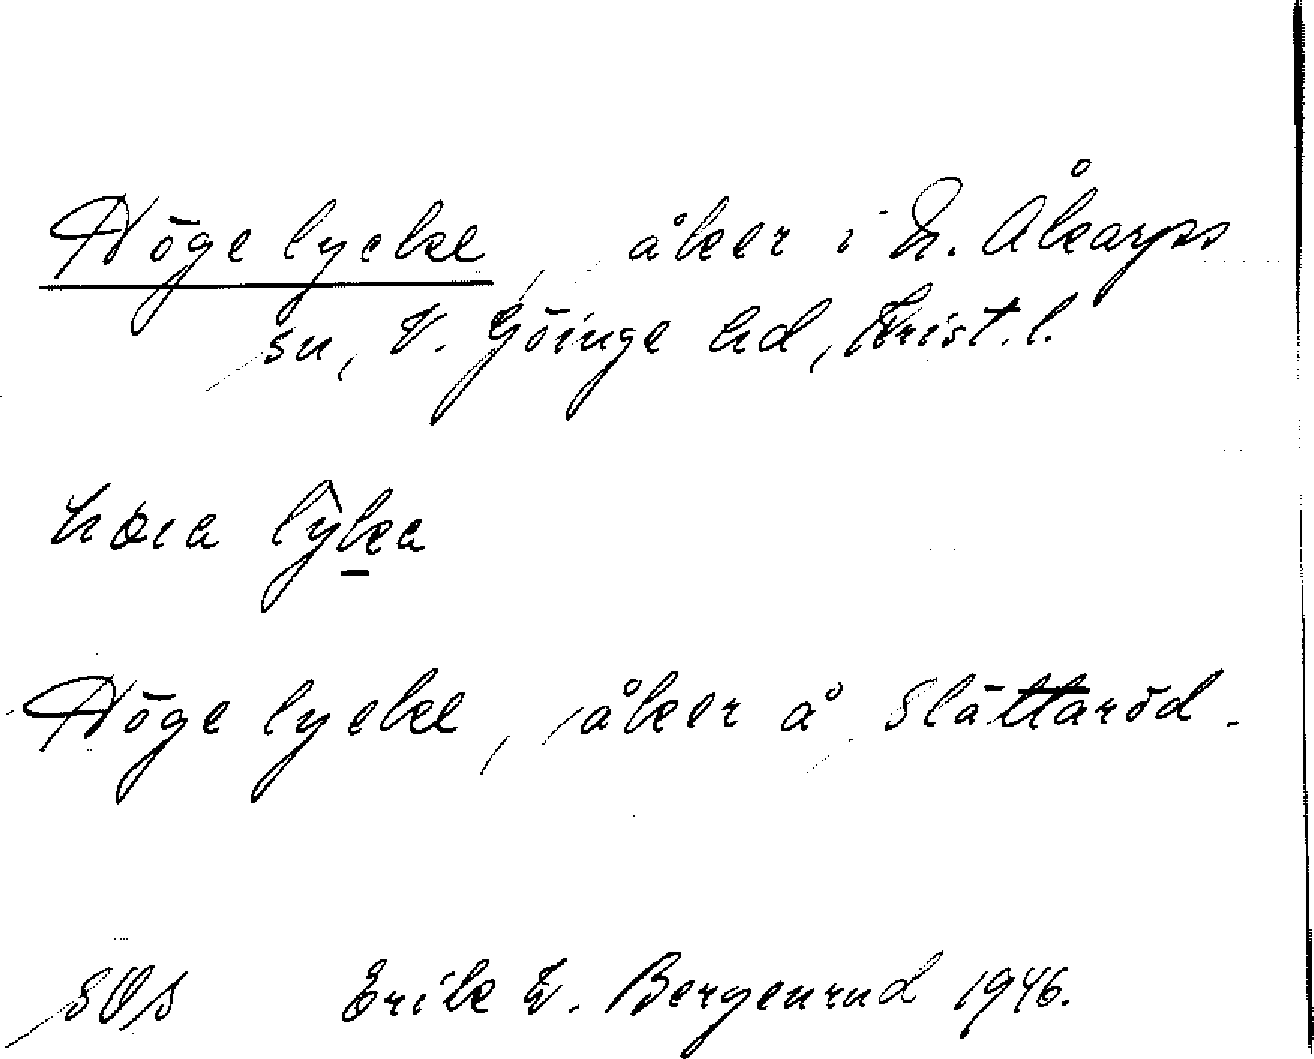 Höge lycke, åker i N. Åkarps
sn, V. Göinge hd, Krist. l.
Höge lycke, åker å Slättaröd.
Erik W. Bergenrud 1946.